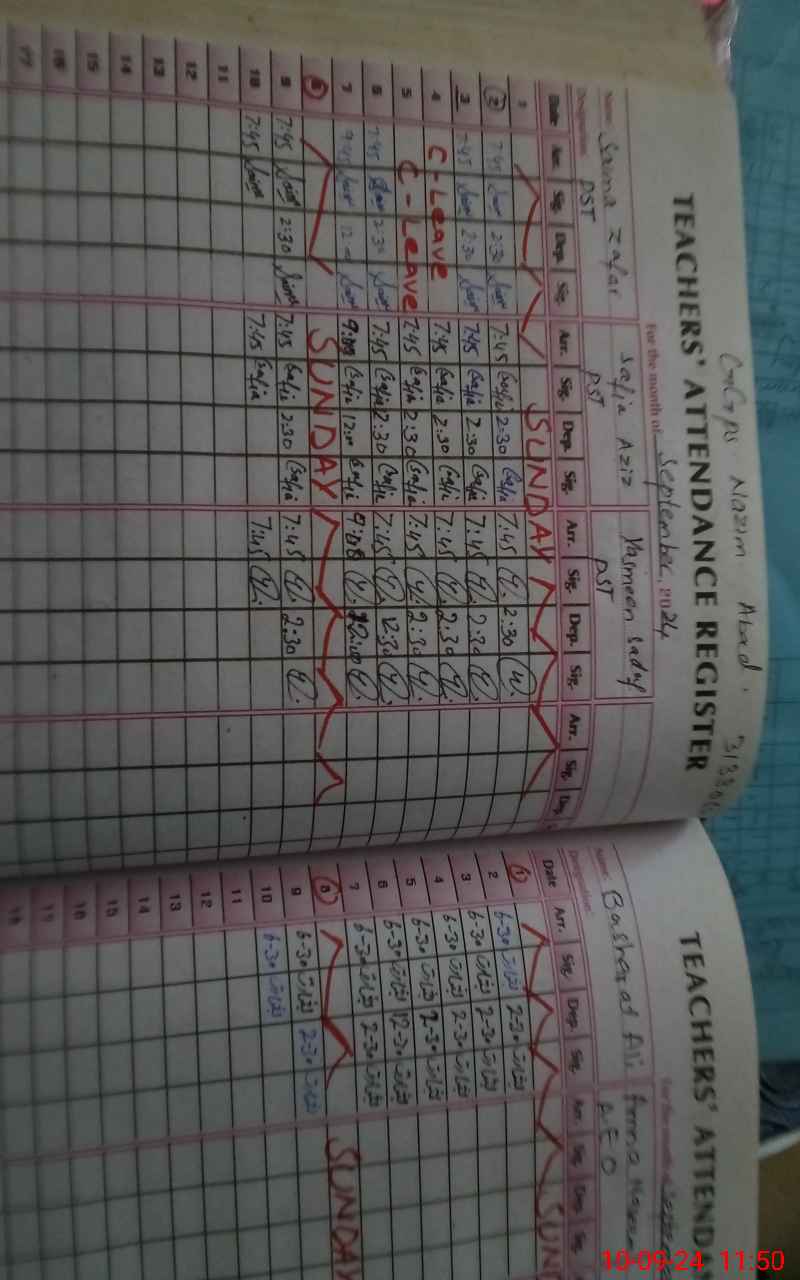 GGPS Nazim Abad.
TEACHERS' ATTENDANCE REGISTER
For the month of September, 2024
Name: Saima Zafar Safia Aziz Yasmeen Sadaf
Designation: PST PST PST
Date Arr. Sig. Dep. Sig. Arr. Sig. Dep. Sig. Arr. Sig. Dep. Sig. Arr. Sig. Dep.
1 SUNDAY
2 7:45 2:30 7:45 Safia 2:30 Safia 7:45 Y. 2:30 Y.
3 7:45 2:30 7:45 Safia 2:30 Safia 7:45 Y. 2:30 Y.
4 C-Leave 7:45 Safia 2:30 Safia 7:45 Y. 2:30 Y.
5 C-Leave 7:45 Safia 2:30 Safia 7:45 Y. 2:30 Y.
6 7:45 2:30 7:45 Safia 2:30 Safia 7:45 Y. 12:30 Y.
7 9:45 12 Safia 12:00 Safia 9:08 Y. 12:00 Y.
8 SUNDAY
9 7:45 Saima 2:30 Saima 7:45 Safia 2:30 Safia 7:45 Y. 2:30 Y.
10 7:45 Saima 7:45 Safia 7:45 Y.
11
12
13
14
15
16
17
TEACHERS' ATTEND
For the month of Septe
Name: Basharad Ali
Designation:
Date Arr. Sig. Dep. Sig. Arr. Sig. Dep. Sig.
1 SUN
2 6-30 بشارت 2-30 بشارت
3 6-30 بشارت 2-30 بشارت
4 6-30 بشارت 2-30 بشارت
5 6-30 بشارت 2-30 بشارت
6 6-30 بشارت 12-30 بشارت
7 6-30 بشارت 2-30 بشارت
8 SUNDAY
9 6-30 بشارت 2-30 بشارت
10 6-30 بشارت
11
12
13
14
15
16
17
18
10-09-24 11:50